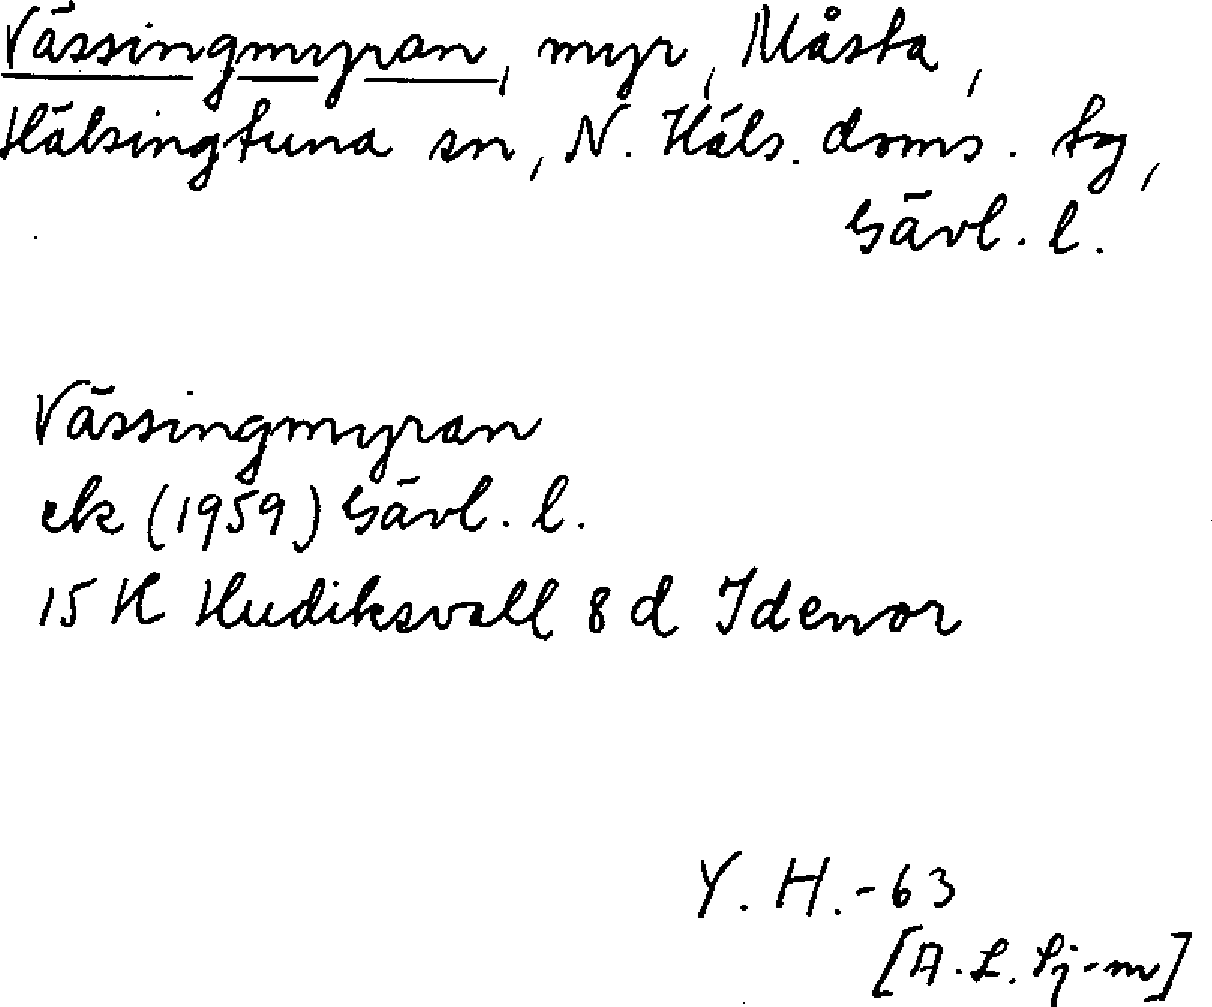 Vässingmyran, myr, Måsta,
Hälsingtuna sn, N. Häls. doms. tg,
Gävl. l.
Vässingmyran
ek (1959) Gävl. l.
15 H Hudiksvall 8 d Idenor
Y. H. -63
[A. L. Sj-m]